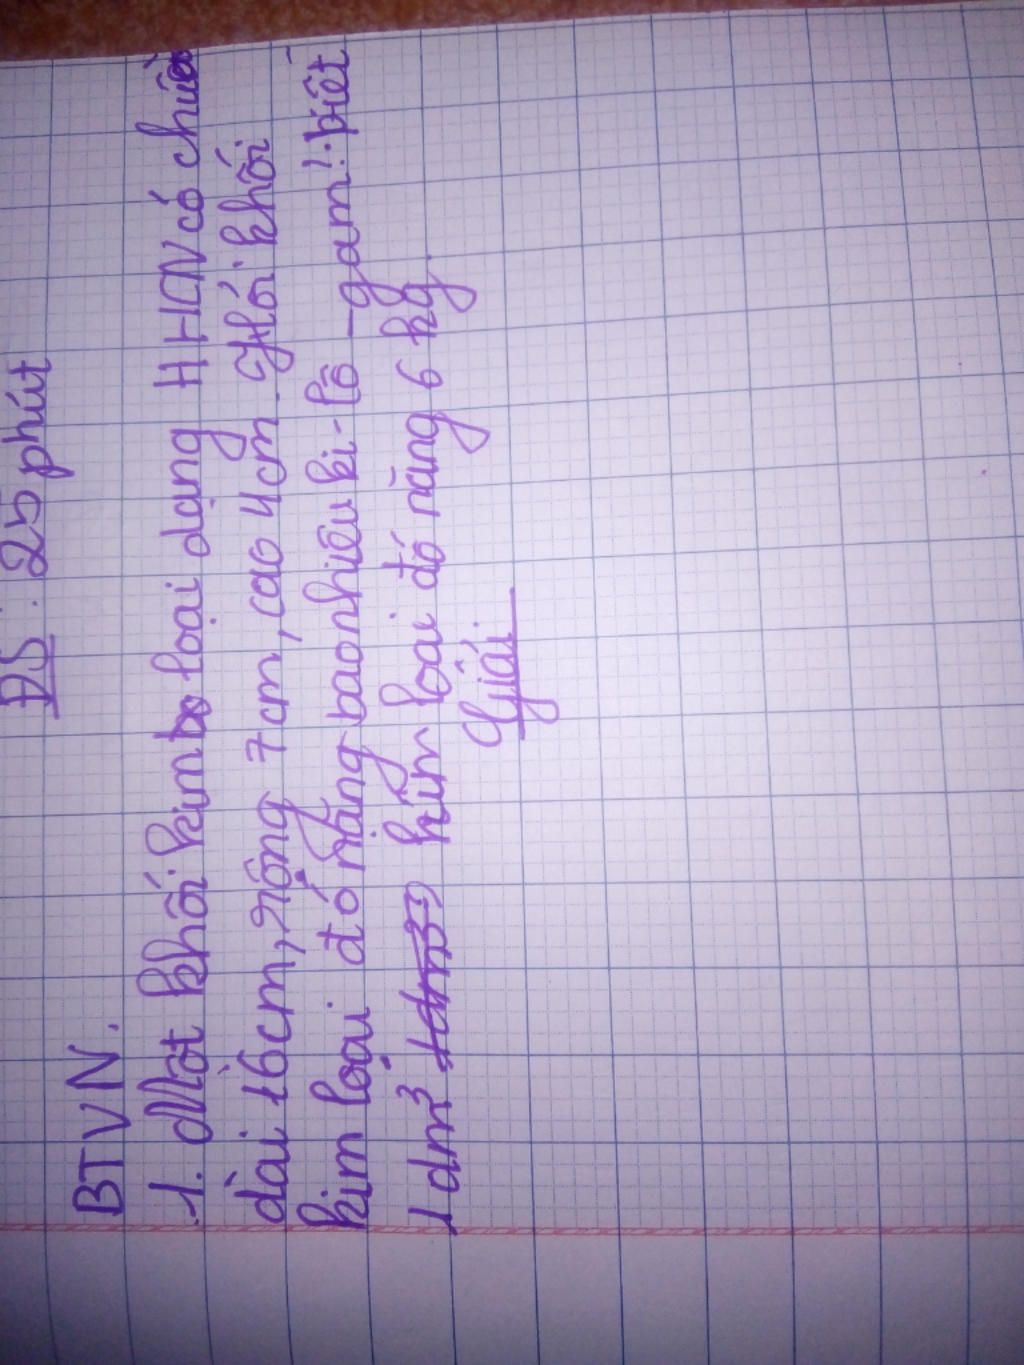 ĐS : 25 phút
BTVN.
1. Một khối kim loại dạng HHCN có chiều
dài 16cm, rộng 7cm, cao 4cm. Hỏi khối
kim loại đó nặng bao nhiêu ki-lô-gam? biết
1dm³ kim loại đó nặng 6 kg.
Giải.